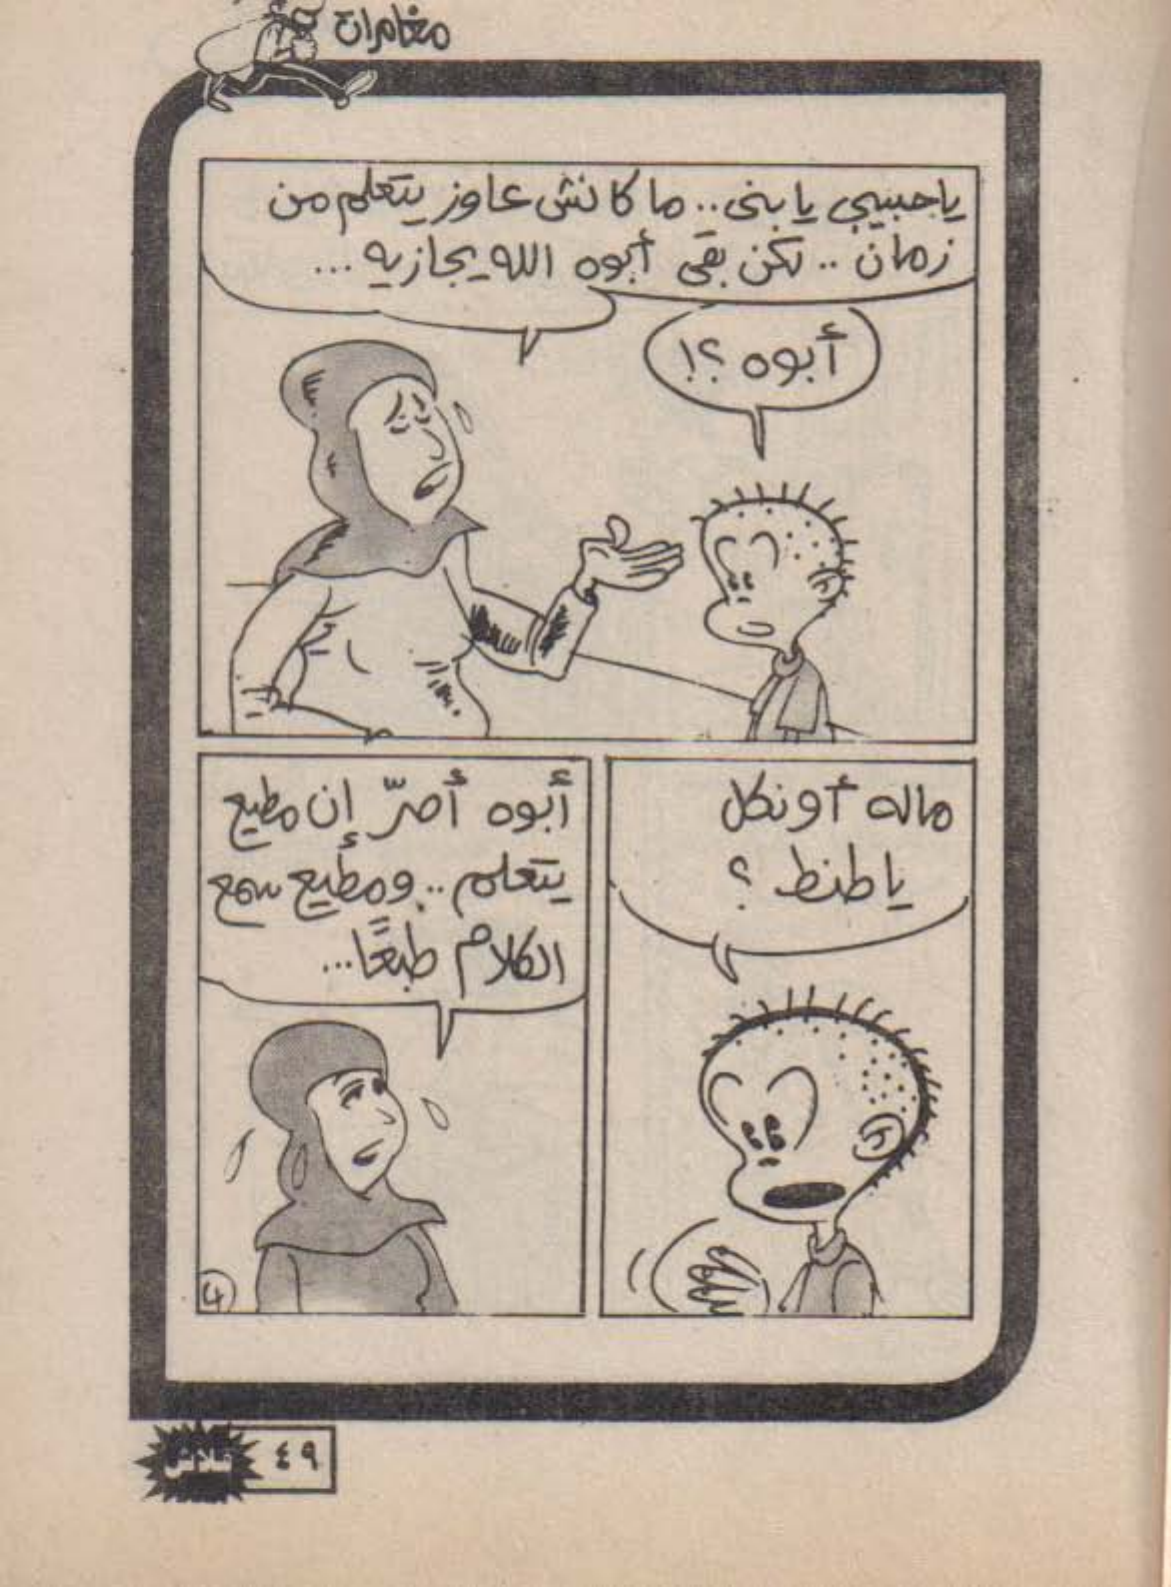 مغامرات
ياحبيبي يا بنى.. ما كانش عاوز يتعلم من
زمان .. لكن بقى أبوه الله يجازيه ...
أبوه ؟!
ماله أونكل
ياطنط ؟
أبوه أصرّ إن مطيع
يتعلم .. ومطيع سمع
الكلام طبعًا...
٤
فلاش ٤٩